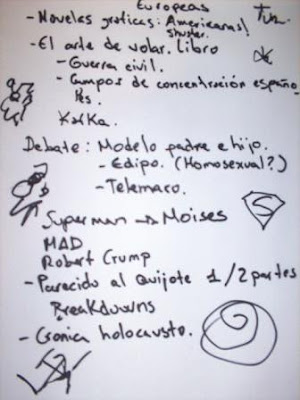 Europeas
- Novelas graficas: Americanas!
Shuster.
- El arte de volar. Libro
- Guerra civil.
- Campos de concentración españo
les.
Kafka.
Debate: Modelo padre e hijo.
- Edipo. (Homosexual?)
- Telemaco.
Superman → Moises
MAD
Robert Crump
- Parecido al Quijote 1/2 partes
Breakdowns
- Cronica holocausto.
S